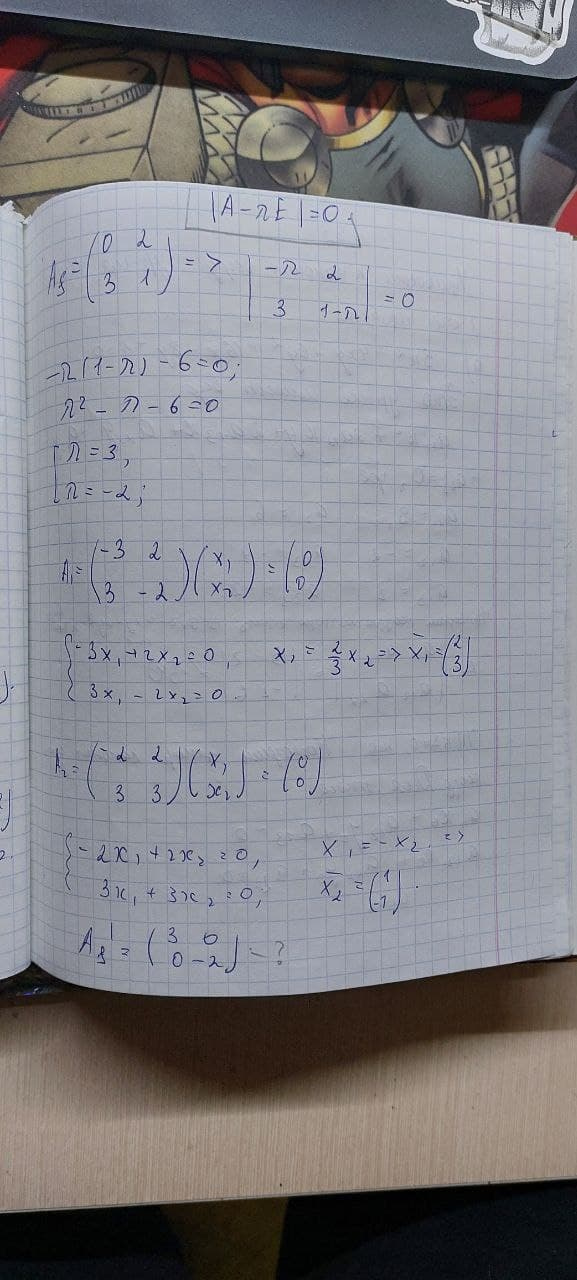 |A-λE|=0;
A_f = (0 2; 3 1) => |-λ 2; 3 1-λ| = 0
-λ(1-λ) - 6 = 0;
λ² - λ - 6 = 0
[λ = 3,
λ = -2;
A₁ = (-3 2; 3 -2)(x₁; x₂) = (0; 0)
{-3x₁ + 2x₂ = 0, x₁ = 2/3 x₂ => x̄₁ = (2; 3)
3x₁ - 2x₂ = 0.
A₂ = (-2 2; 3 3)(x₁; x₂) = (0; 0)
{-2x₁ + 2x₂ = 0, x₁ = -x₂. =>
3x₁ + 3x₂ = 0; x̄₂ = (1; -1).
A_f' = (3 0; 0 -2) - ?